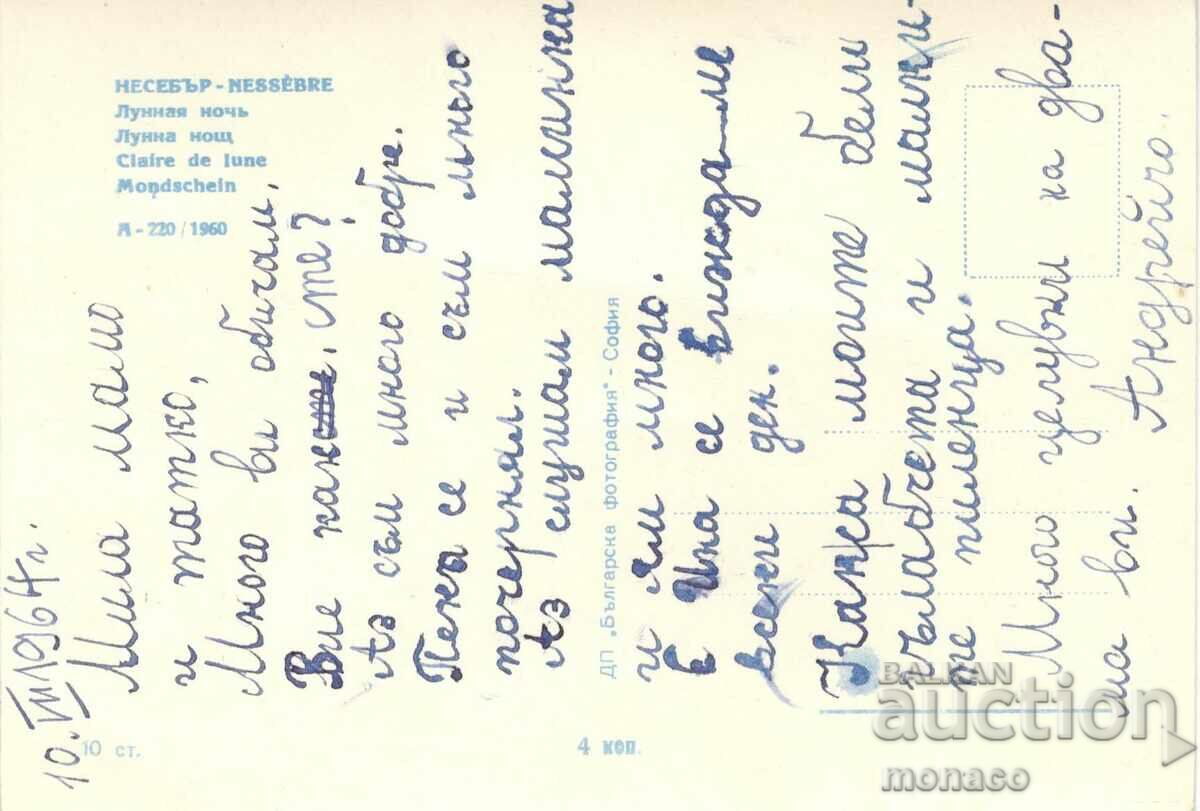 НЕСЕБЪР - NESSÈBRE
Лунная ночь
Лунна нощ
Claire de lune
Mondschein
А - 220 / 1960
10 ст.
4 коп.
ДП „Българска фотография" - София
10.VIII 1964 г.
Мила мамо
и татко,
Много ви обичам.
Вие как сте?
Аз съм много добре.
Пека се и съм много
почернял.
Аз слушам маминка
и ям много.
С Ина се виждаме
всеки ден.
Как са моите бели
гълабчета и малки-
те пиленца.
Много целувки на два-
ма ви. Андрейчо.
BALKAN
auction
monaco